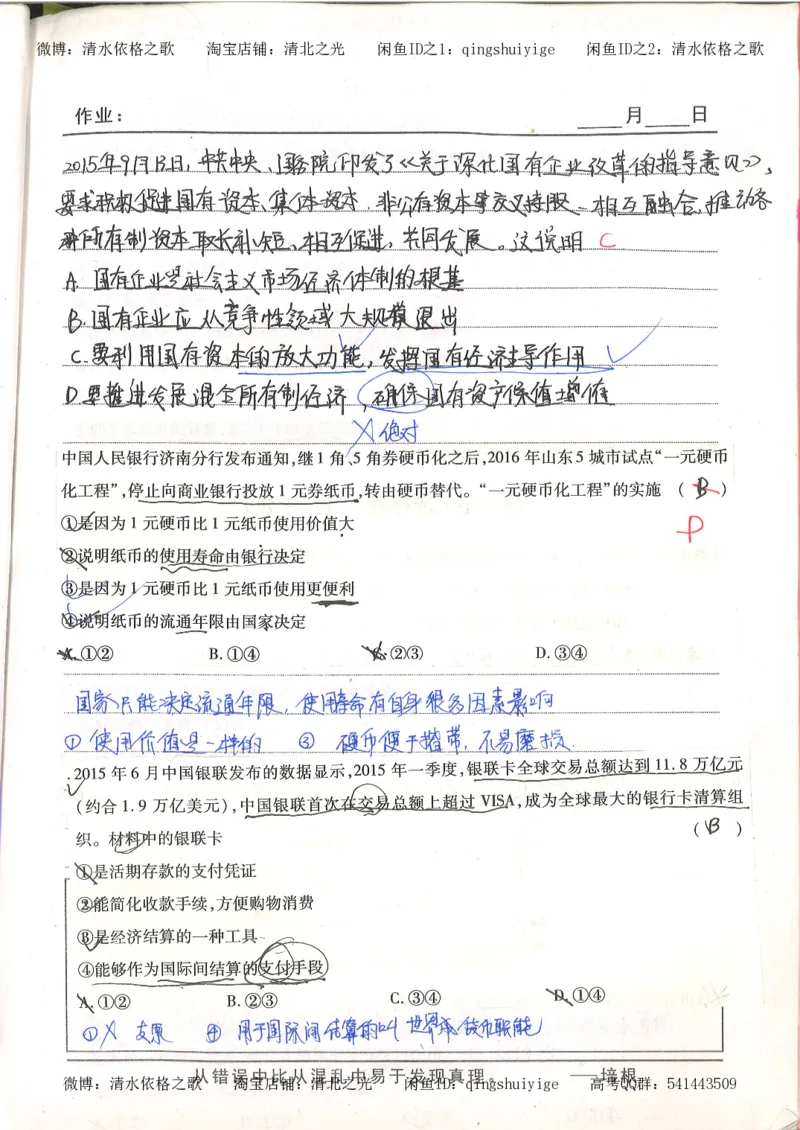 微博：清水依格之歌 淘宝店铺：清北之光 闲鱼ID之1：qingshuiyige 闲鱼ID之2：清水依格之歌
作业： 月 日
2015年9月13日，中共中央、国务院印发了《关于深化国有企业改革的指导意见》，
要求积极促进国有资本、集体资本、非公有资本等交叉持股、相互融合，推动各
种所有制资本取长补短、相互促进、共同发展。这说明 C
A. 国有企业是社会主义市场经济体制的根基
B. 国有企业应从竞争性领域大规模退出
C. 要利用国有资本的放大功能，发挥国有经济主导作用
D. 要推进发展混合所有制经济，确保国有资产保值增值
绝对
中国人民银行济南分行发布通知,继1角、5角券硬币化之后,2016年山东5城市试点“一元硬币
化工程”,停止向商业银行投放1元券纸币,转由硬币替代。“一元硬币化工程”的实施 ( B )
①是因为1元硬币比1元纸币使用价值大
D
②说明纸币的使用寿命由银行决定
③是因为1元硬币比1元纸币使用更便利
④说明纸币的流通年限由国家决定
A.①② B.①④ C.②③ D.③④
国家只能决定流通年限，使用寿命有自身很多因素影响
① 使用价值是一样的 ③ 硬币便于携带，不易磨损
2015年6月中国银联发布的数据显示,2015年一季度,银联卡全球交易总额达到11.8万亿元
(约合1.9万亿美元),中国银联首次在交易总额上超过VISA,成为全球最大的银行卡清算组
织。材料中的银联卡 ( B )
①是活期存款的支付凭证
②能简化收款手续,方便购物消费
③是经济结算的一种工具
④能够作为国际间结算的支付手段
A.①② B.②③ C.③④ D.①④
①X 支票 ④ 用于国际间结算的叫世界货币职能
从错误中比从混乱中易于发现真理。 ——培根
微博：清水依格之歌 淘宝店铺：清北之光 闲鱼ID：qingshuiyige 高考QQ群：541443509